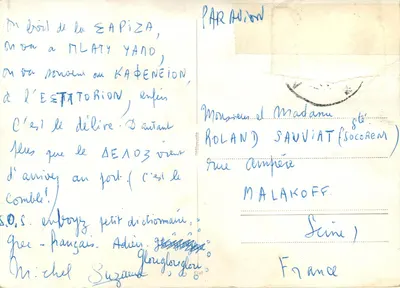 Du bord de la ΣΑΡΙΖΑ,
on va à ΠLATY YAΛO,
on va souvent au ΚΑΦΕΝΕΙΟΝ,
à l'ΕΣΤΙΑΤΟRION, enfin
C'est le délire. D'autant
plus que le ΔΕΛΟΣ vient
d'arriver au port (c'est le
comble!)
S.O.S. envoyez petit dictionnaire
grec - français. Adieu
glouglouglou
Michel Suzanne
PAR AVION
Monsieur et Madame
ROLAND SAUVIAT (sté SOCOREM)
rue Ampère
MALAKOFF
(Seine)
France